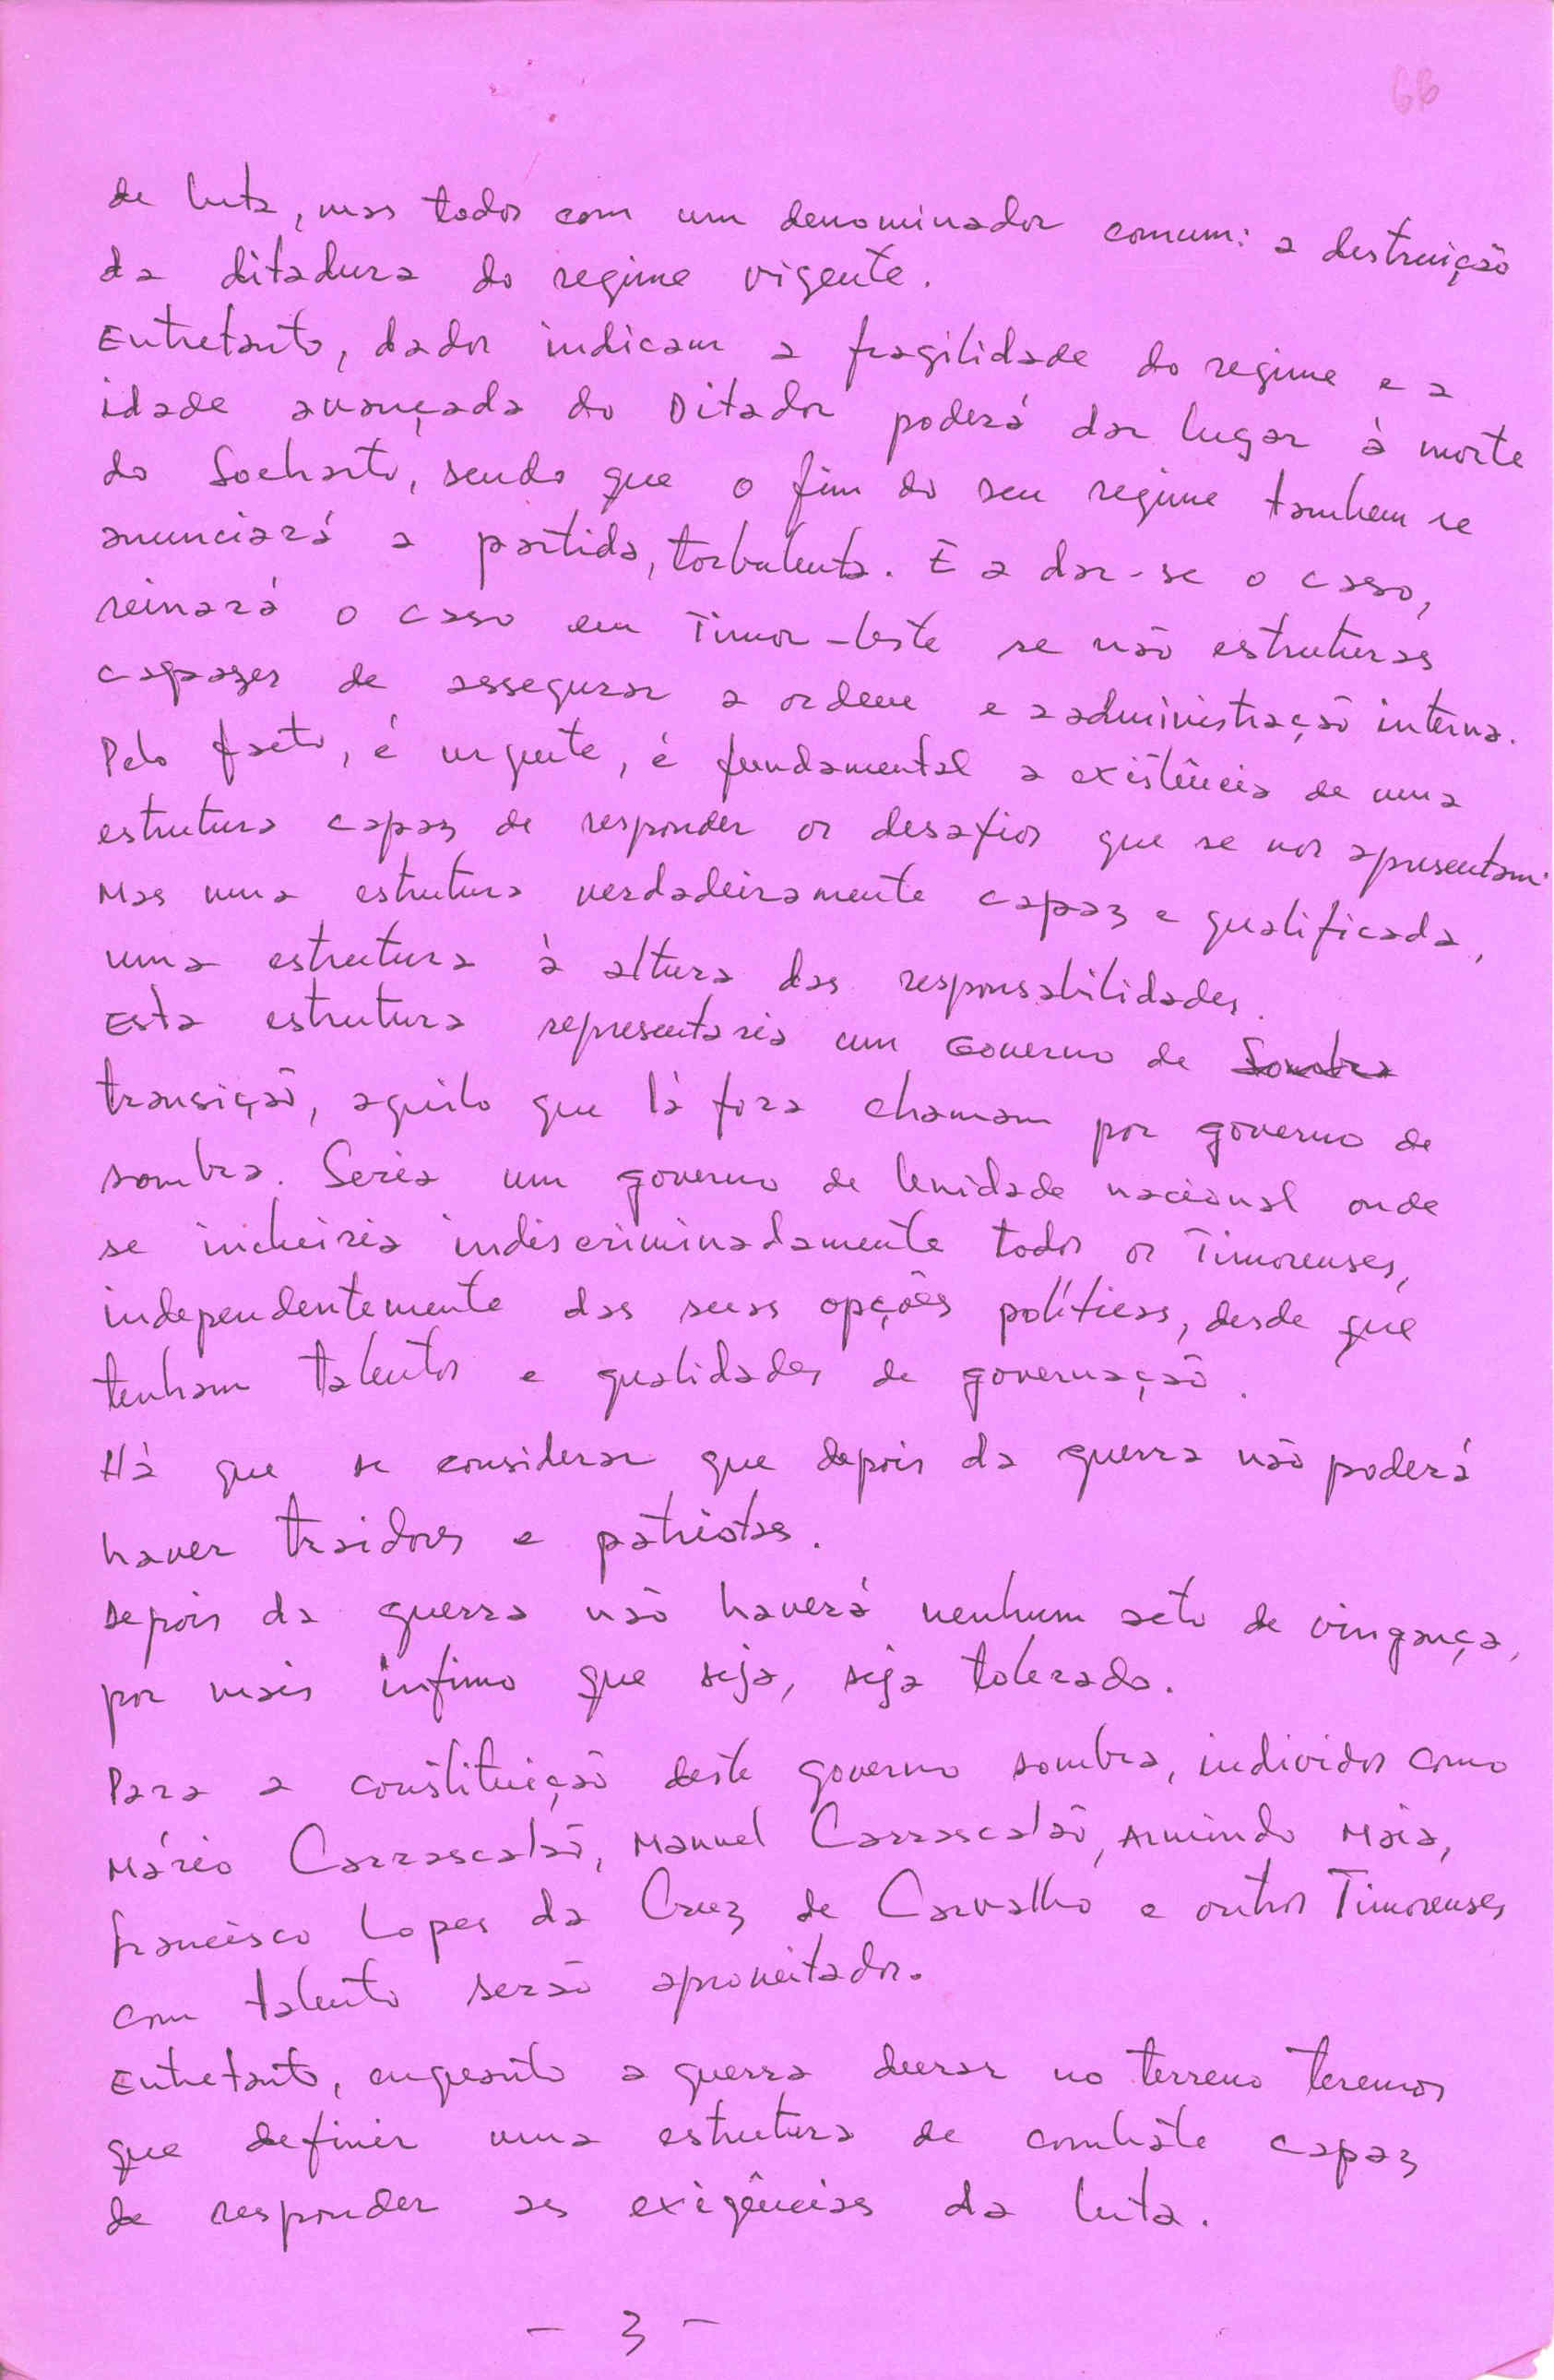 66
de luta, mas todos com um denominador comum: a destruição
da ditadura do regime vigente.
Entretanto, dados indicam a fragilidade do regime e a
idade avançada do Ditador poderá dar lugar à morte
do Soeharto, sendo que o fim do seu regime tambem se
anunciará a partida, torbulenta. E a dar-se o caso,
reinará o caso em Timor-Leste se não estruturas
capazes de assegurar a ordem e a administração interna.
Pelo facto, é urgente, é fundamental a existência de uma
estrutura capaz de responder os desafios que se nos apresentam.
Mas uma estrutura verdadeiramente capaz e qualificada,
uma estrutura à altura das responsabilidades.
Esta estrutura representaria um Governo de Sombra
transição, aquilo que lá fora chamam por governo de
sombra. Seria um governo de Unidade nacional onde
se incluiria indiscriminadamente todos os Timorenses,
independentemente das suas opções políticas, desde que
tenham talentos e qualidades de governação.
Há que se considerar que depois da guerra não poderá
haver traidores e patriotas.
Depois da guerra não haverá nenhum acto de vingança,
por mais infimo que seja, seja tolerado.
Para a constituição deste governo sombra, individos como
Mário Carrascalão, Manuel Carrascalão, Armindo Maia,
Francisco Lopes da Cruz de Carvalho e outros Timorenses
com talento serão aproveitados.
Entretanto, enquanto a guerra durar no terreno teremos
que definir uma estrutura de combate capaz
de responder as exigências da luta.
- 3 -